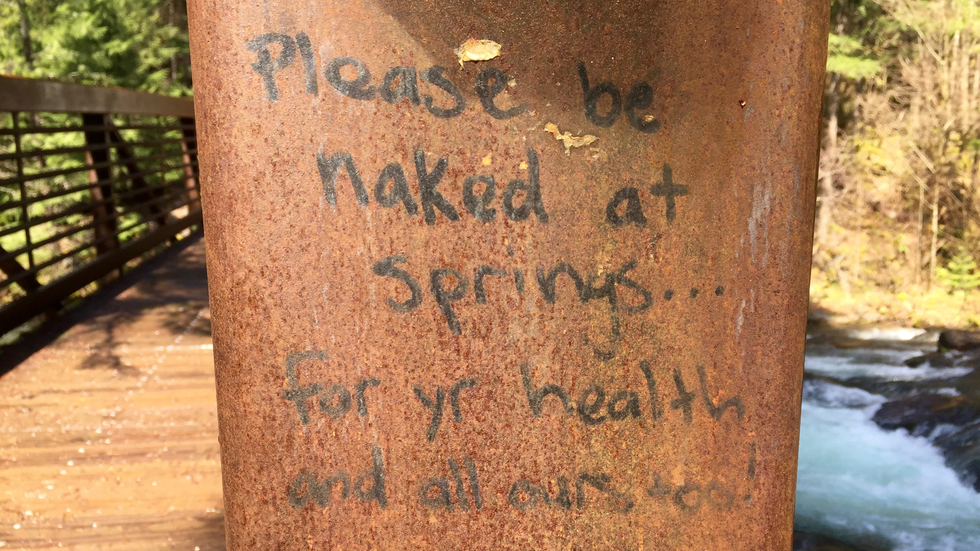 Please be
naked at
springs...
For yr health
and all ours too!